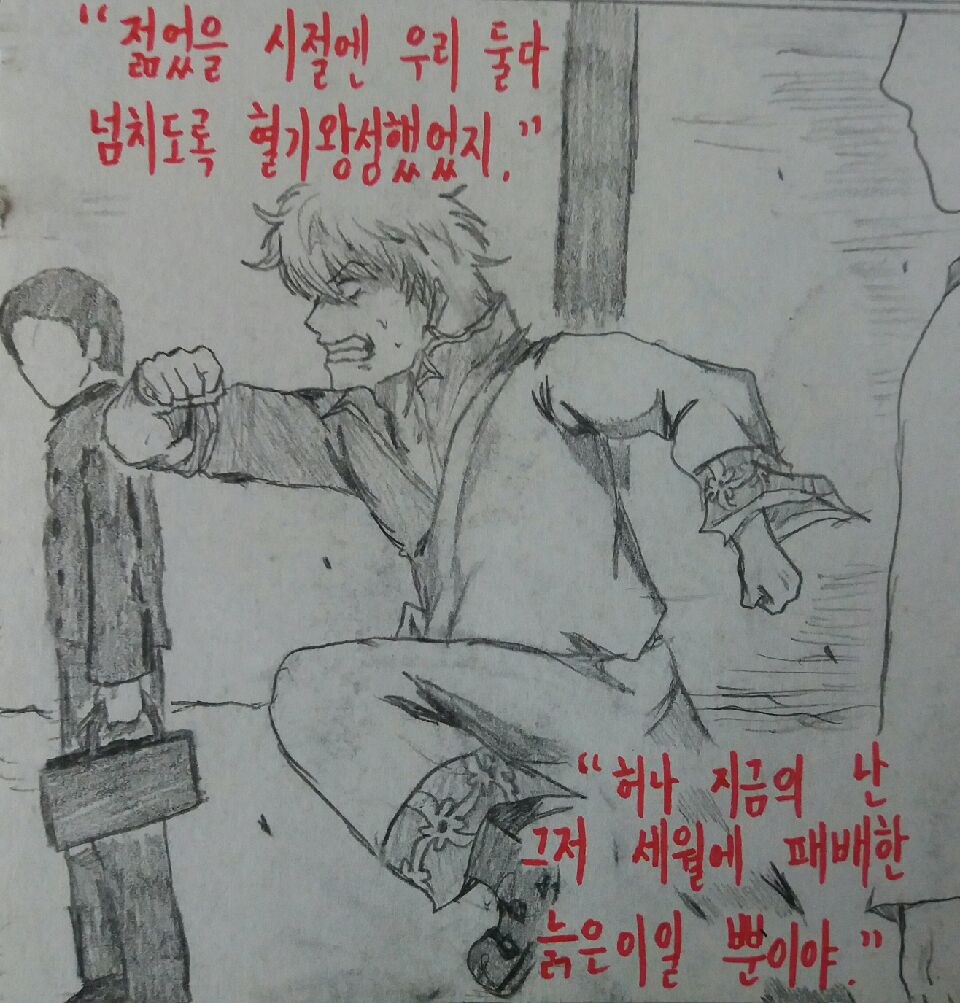 “젊었을 시절엔 우리 둘다
넘치도록 혈기왕성했었지.”
“허나 지금의 난
그저 세월에 패배한
늙은이일 뿐이야.”